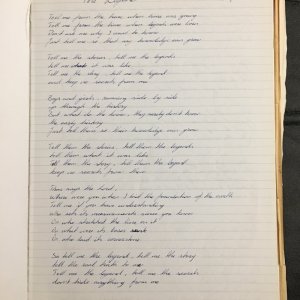 The Legend
Tell me from the time when time was young
Tell me from the time when legends were born
Don't ask me why I want to know
Just tell me so that my knowledge can grow
Tell me the stories, tell me the legends
tell me what it was like
Tell me the story, tell me the legend
and keep no secrets from me
Boys and girls, running side by side
up through the
But what do the know, they surely don't know
the early history
Just tell them so their knowledge can grow
Tell them the stories, tell them the legends
tell them what it was like
Tell them the story, tell them the legend
keep no secrets from them
Thus says the Lord,
Where were you when I laid the foundation of the earth
Tell me if you have understanding
Who set its measurements since you know
Or who stretched the line on it
On what were its bases sunk
Or who laid its cornerstone
So tell me the legend, tell me the story
tell the real truth to me
Tell me the legend, tell me the secrets
don't hide anything from me